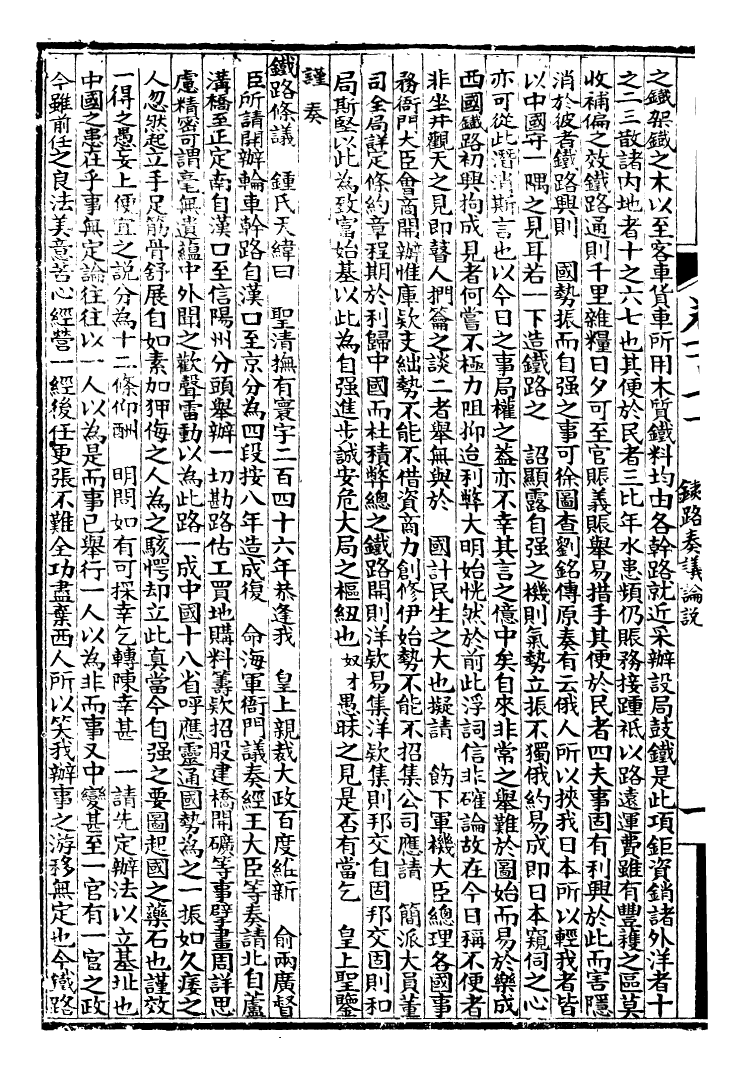 之鐵架鐵之木以至客車貨車所用木質鐵料均由各幹路就近采辦設局鼓鐵是此項鉅資銷諸外洋者十
之二三散諸內地者十之六七也其便於民者三比年水患頻仍賑務接踵祇以路遠運費雖有豐穫之區莫
收補偏之效鐵路通則千里雜糧日夕可至官賑義賑舉易措手其便於民者四夫事固有利興於此而害隱
消於彼者鐵路興則 國勢振而自强之事可徐圖查劉銘傳原奏有云俄人所以挾我日本所以輕我者皆
以中國守一隅之見耳若一下造鐵路之 詔顯露自强之機則氣勢立振不獨俄約易成即日本窺伺之心
亦可從此潛消斯言也以今日之事局權之益亦不幸其言之億中矣自來非常之舉難於圖始而易於樂成
西國鐵路初興拘成見者何嘗不極力阻抑迨利弊大明始恍然於前此浮詞信非確論故在今日稱不便者
非坐井觀天之見即瞽人捫籥之談二者舉無與於 國計民生之大也擬請 飭下軍機大臣總理各國事
務衙門大臣會商開辦惟庫欵支絀勢不能不借資商力創修伊始勢不能不招集公司應請 簡派大員董
司全局詳定條約章程期於利歸中國而杜積弊總之鐵路開則洋欵易集洋欵集則邦交自固邦交固則和
局斯堅以此為致富始基以此為自强進步誠安危大局之樞紐也奴才愚昧之見是否有當乞 皇上聖鑒
謹奏
鐵路條議 鍾氏天緯曰 聖清撫有寰宇二百四十六年恭逢我 皇上親裁大政百度維新 俞兩廣督
臣所請開辦輪車幹路自漢口至京分為四段按八年造成復 命海軍衙門議奏經王大臣等奏請北自蘆
溝橋至正定南自漢口至信陽州分頭舉辦一切勘路估工買地購料籌欵招股建橋開礦等事擘畫周詳思
慮精密可謂毫無遺蘊中外聞之歡聲雷動以為此路一成中國十八省呼應靈通國勢為之一振如久痿之
人忽然起立手足筋骨舒展自如素加狎侮之人為之駭愕却立此真當今自强之要圖起國之藥石也謹效
一得之愚妄上便宜之說分為十二條仰酬 明問如有可採幸乞轉陳幸甚 一請先定辦法以立基址也
中國之患在乎事無定論往往以一人以為是而事已舉行一人以為非而事又中變甚至一官有一官之政
今雖前任之良法美意苦心經營一經後任更張不難全功盡棄西人所以笑我辦事之游移無定也今鐵路
鐵路奏議論說
一